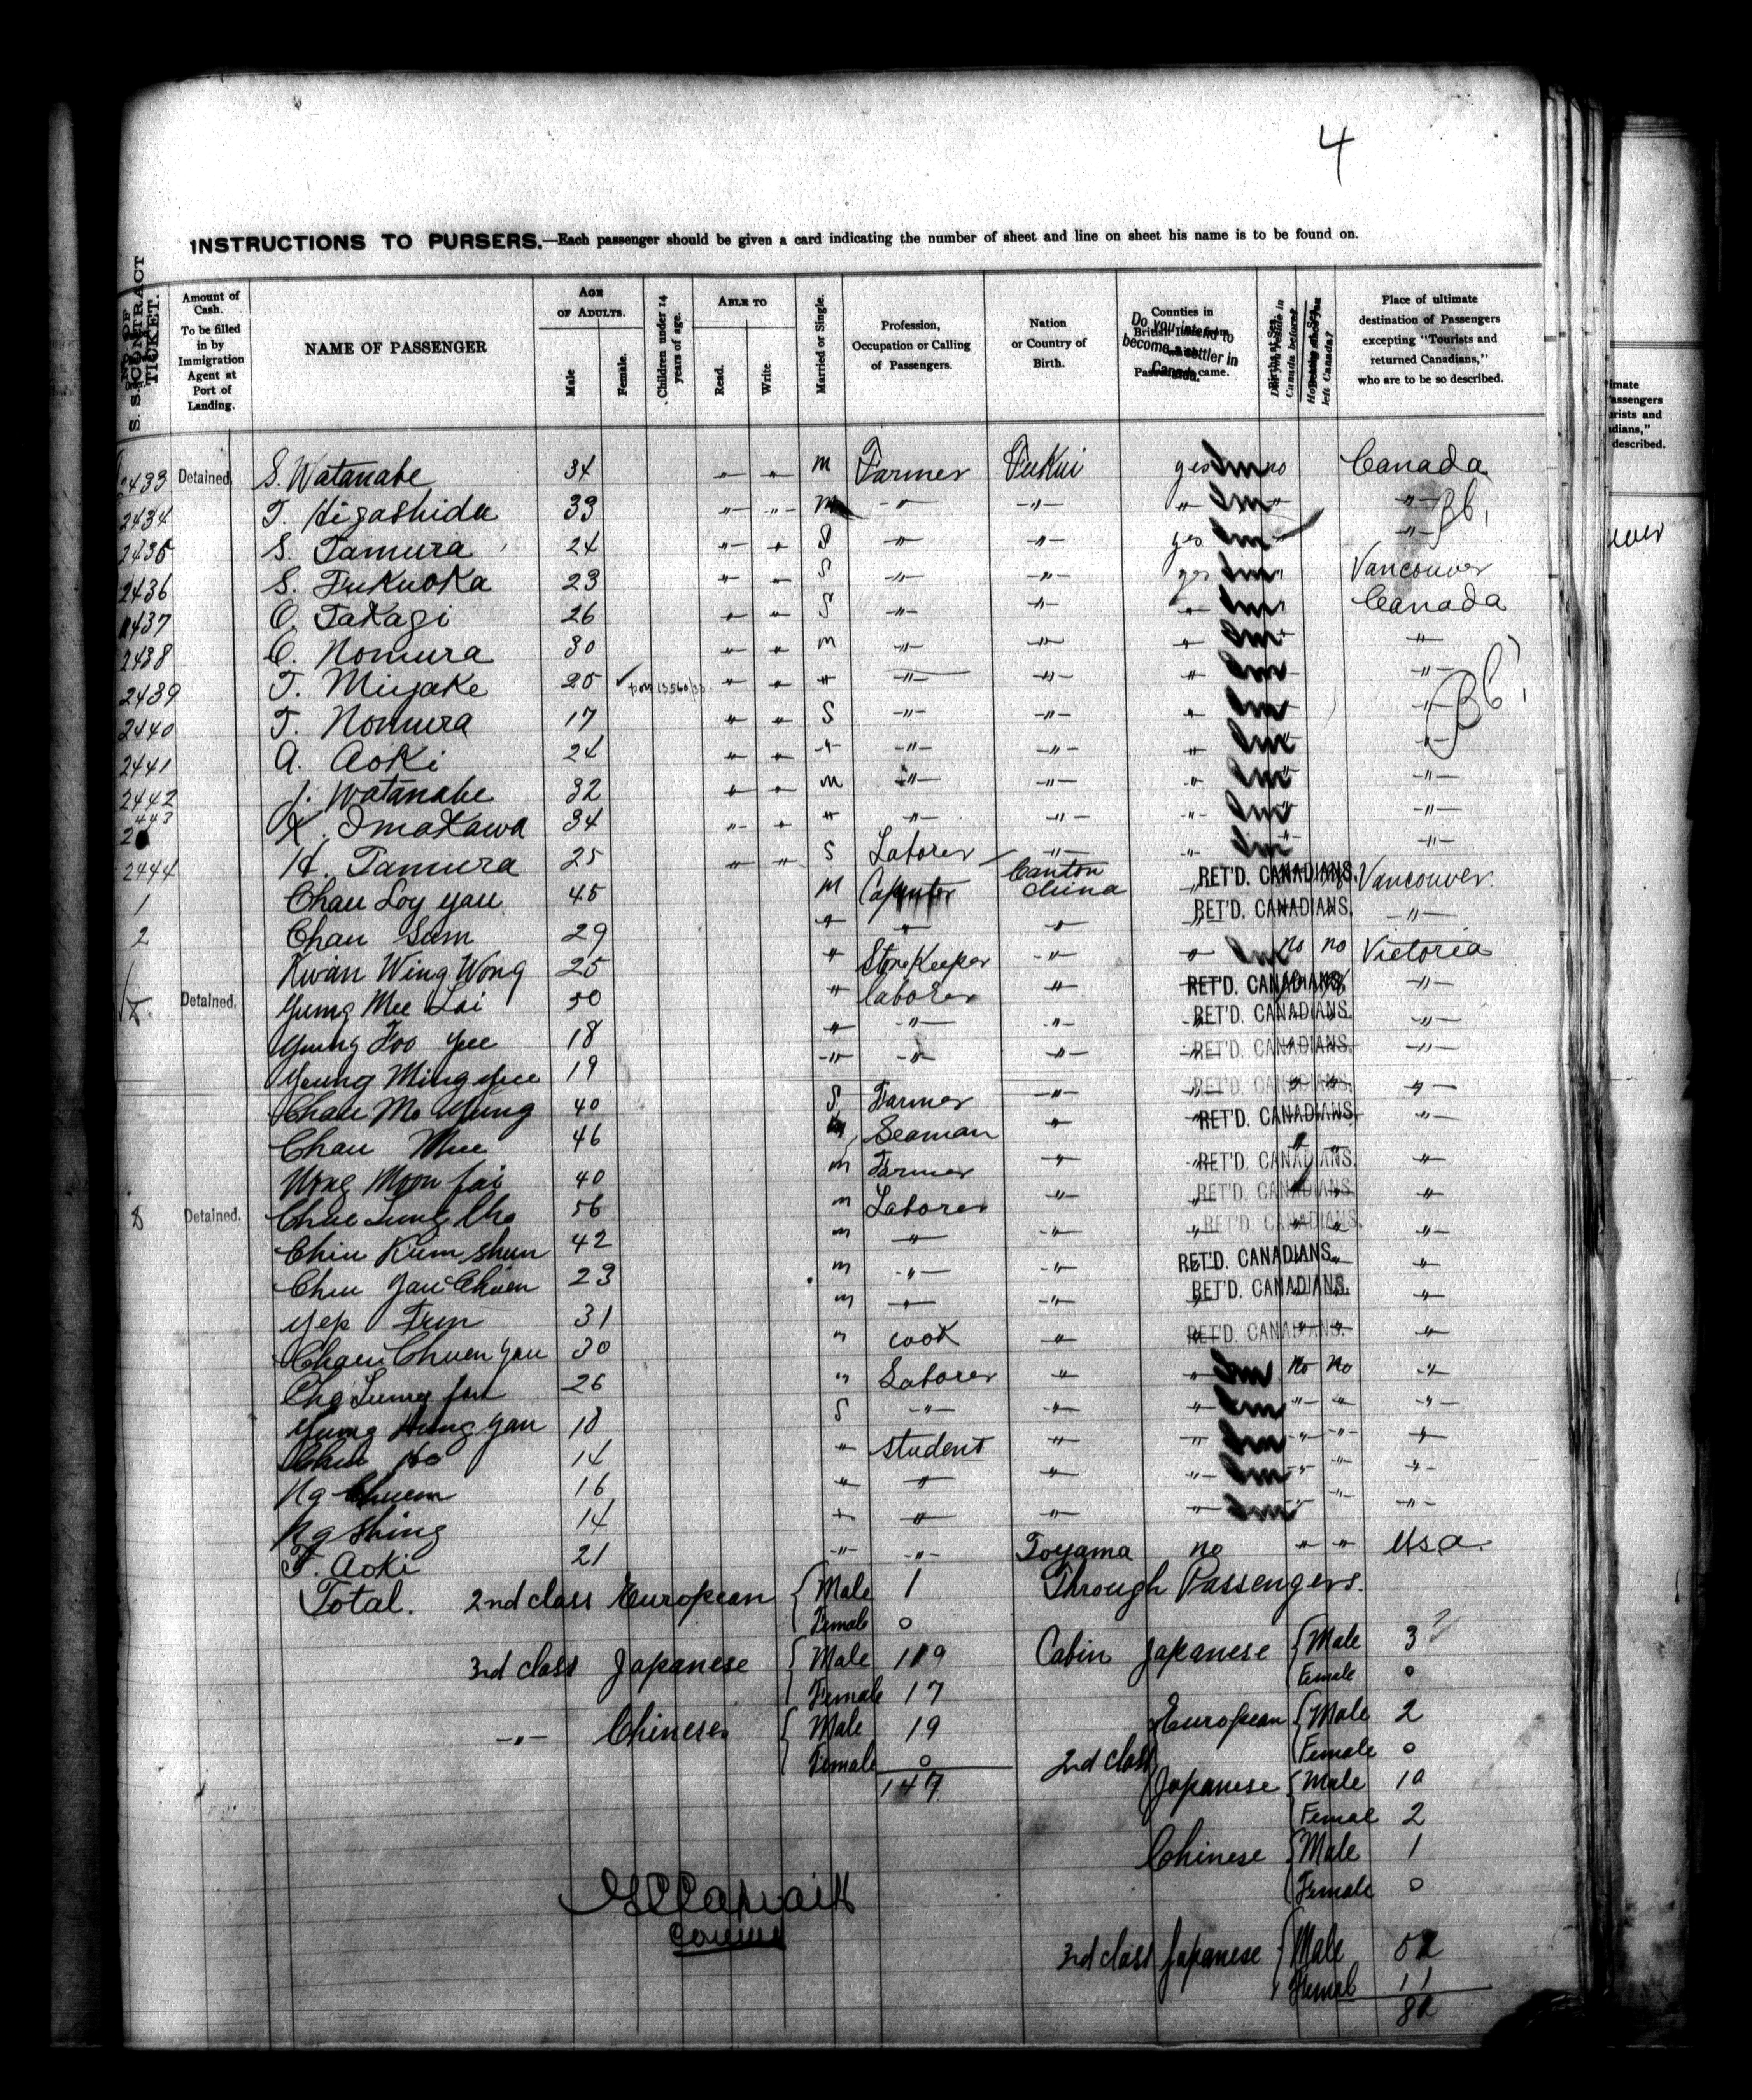 4
INSTRUCTIONS TO PURSERS.—Each passenger should be given a card indicating the number of sheet and line on sheet his name is to be found on.
S. S. CONTRACT TICKET.
Amount of Cash. To be filled in by Immigration Agent at Port of Landing.
NAME OF PASSENGER
AGE OF ADULTS. Male Female.
Children under 14 years of age.
ABLE TO Read. Write.
Married or Single.
Profession, Occupation or Calling of Passengers.
Nation or Country of Birth.
Counties in
Do you intend to become a settler in Canada.
Canada before?
left Canada?
Place of ultimate destination of Passengers excepting "Tourists and returned Canadians," who are to be so described.
2433 Detained. S. Watanabe 34 -"- -"- M Farmer Fukui yes Im no Canada
2434 T. Higashida 33 -"- -"- M -"- -"- " Im " -"-
2435 S. Tamura 24 -"- " S -"- -"- yes Im " -"-
2436 S. Fukuoka 23 " " S -"- -"- yes Im " Vancouver
2437 O. Takagi 26 " " S -"- -"- " Im " Canada
2438 C. Nomura 30 " " m -"- -"- " Im " -"-
2439 T. Miyake 25 " " " -"- -"- " Im " -"-
2440 T. Nomura 17 " " S -"- -"- " Im " -"-
2441 A. Aoki 24 " " -"- -"- -"- " Im " -"-
2442 J. Watanabe 32 " " m -"- -"- " Im " -"-
2443 K. Imakawa 34 -"- " " -"- -"- -"- Im " -"-
2444 H. Tamura 25 " " S Laborer -"- " Im -"- -"-
1 Chau Loy yau 45 M Canton China " RET'D. CANADIANS. Vancouver.
2 Chau Sam 29 " " " " RET'D. CANADIANS. -"-
Kwan Wing Wong 25 " StoreKeeper -"- " Im no no Victoria
Detained. Yung Mee Lai 50 " laborer " RET'D. CANADIANS. -"-
Yung Foo yee 18 " -"- -"- " RET'D. CANADIANS. -"-
Yeung Ming yee 19 -"- -"- -"- " RET'D. CANADIANS. -"-
Chau Mo Yung 40 S Farmer -"- " RET'D. CANADIANS. "-
Chau Mee 46 Seaman " " RET'D. CANADIANS. -"-
Wong Moon fai 40 m Farmer " " RET'D. CANADIANS. "
8 Detained. Chue Lung Cho 56 m Laborer -"- " RET'D. CANADIANS. "
Chiu Kum shun 42 m " -"- " RET'D. CANADIANS. -"-
Chiu Yau Chuen 23 m -"- -"- RET'D. CANADIANS. "
Yep Fun 31 m " -"- " RET'D. CANADIANS. "
Chau Chuen yau 30 " cook " " RET'D. CANADIANS. "
26 " Laborer " " Im no no "
Yung Hung yau 18 S -"- " " Im " " -"-
Ho 14 " student " " Im " -"- "
Ng Chuen 16 " " " " Im " " -"-
Ng Shing 14 " " " " Im " " -"-
F. Aoki 21 -"- -"- Toyama no " " U.S.A.
Total. 2nd class European Male 1
Female 0
3rd class Japanese Male 119
Female 17
-"- Chinese Male 19
Female 0
147
Through Passengers.
Cabin Japanese Male 3
Female 0
2nd class European Male 2
Female 0
Japanese Male 10
Female 2
Chinese Male 1
Female 0
3rd class Japanese Male
Female 11
imate
assengers
urists and
dians,"
described.